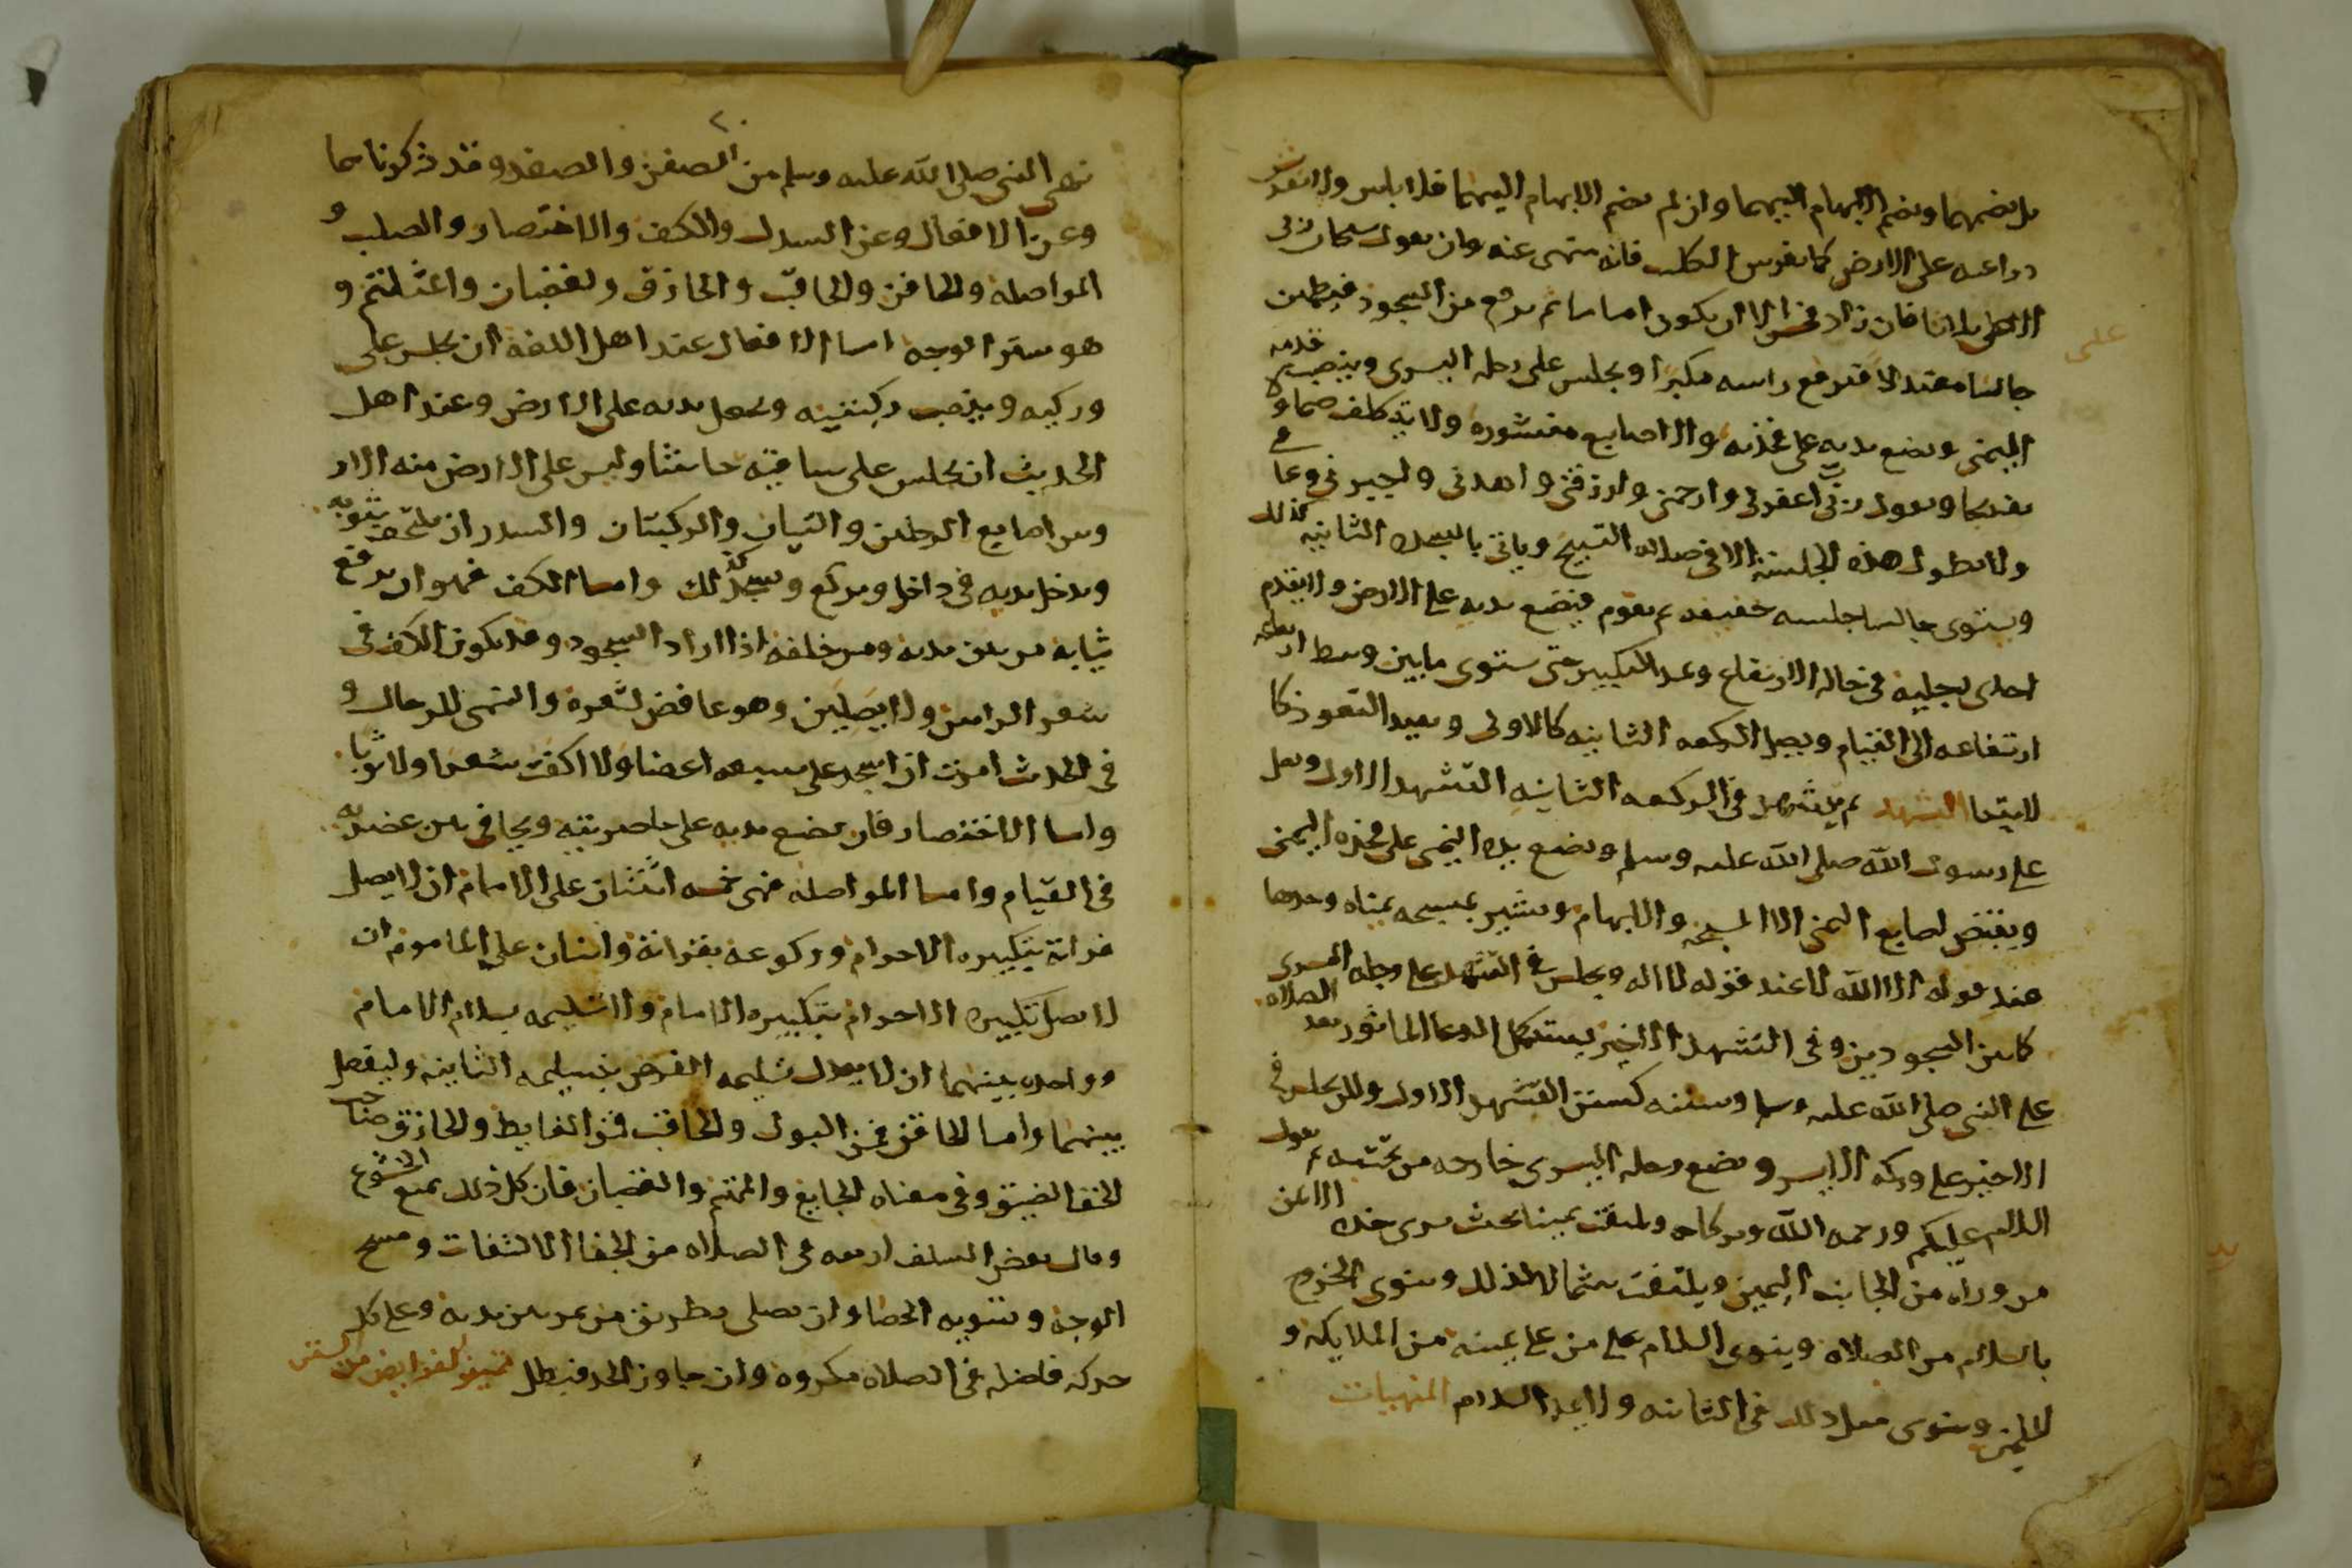 بل يضمهما ويضم الابهام اليهما وان لم يضم الابهام اليهما فلا باس ولا يفترش
دراعيه على الارض كما يفرس الكلب فانه منهى عنه وان يقول سبحان ربى
الاعلى ثلاثا فان زاد فحسن الا ان يكون اماما ثم يرفع من السجود فيطمين
جالسا معتدلا فيرفع راسه مكبرا ويجلس على رجله اليسرى وينصب قدمه
اليمنى ويضع يديه على فخذيه والاصابع منشوره ولا يتكلف ضمها ولا
تفريجها ويقول رب اغفر لى وارحمنى وارزقنى واهدنى واجبرنى وعافنى
ولا يطول هذه الجلسة الا فى صلاة التسبيح وياتى بالسجدة الثانيه كذلك
ويستوى جالسا جلسه خفيفه ثم يقوم فيضع يديه على الارض ولا يقدم
احدى رجليه فى حاله الارتفاع ويمد التكبير حتى يستوى ما بين وسط ارتفاعه
ارتفاعه الى القيام ويصلى الركعه الثانيه كالاولى ويعيد التعوذ كا
لابتدا التشهد ثم يتشهد فى الركعه الثانيه التشهد الاول ويصلى
على رسول الله صلى الله عليه وسلم ويضع يده اليمنى على فخذه اليمنى
ويقبض اصابع اليمنى الا المسبحة والابهام ويشير بمسبحه يمناه وحدها
عند قوله الا الله لا عند قوله لا اله ويجلس فى التشهد على رجله اليسرى
كما بين السجودين وفى التشهد الاخير يستكمل الدعا الماثور بعد الصلاه
على النبى صلى الله عليه وسلم وسننه كسنن التشهد الاول ولكن يجلس فى
الاخير على وركه الايسر ويضع رجله اليسرى خارجه من تحته ثم يقول
السلام عليكم ورحمه الله وبركاته ويلتفت يمينا بحيث يرى خده الايمن
من وراه من الجانب اليمين ويلتفت شمالا كذلك وينوى الخروج
بالسلام من الصلاه وينوى السلام على من على يمينه من الملايكه و
المسلمين وينوى مثل ذلك فى الثانيه ولا يمد السلام المنهيات
نهى النبى صلى الله عليه وسلم من الصفن والصفد وقد ذكرناهما
وعن الاقعا وعن السدل والكف والاختصار والصلب و
المواصله والحاقن والحاقب والحازق والغضبان والتلثم و
هو ستر الوجه اما الاقعا عند اهل اللغه ان يجلس على
وركيه وينصب ركبتيه ويجعل يديه على الارض وعند اهل
الحديث ان يجلس على ساقيه جاثيا وليس على الارض منه الا ر
وس اصابع الرجلين والركبتان والسدل ان يلتحف بثوبه
ويدخل يديه فى داخل ويركع ويسجد كذلك واما الكف فهو ان يرفع
ثيابه من بين يديه ومن خلفه اذا اراد السجود وقد يكون الكف فى
شعر الراس ولا يصلين وهو عاقص لشعره والنهى للرجال و
فى الحديث امرت ان اسجد على سبعه اعضا ولا اكفت شعرا ولا ثوبا
واما الاختصار فان يضع يديه على خاصرتيه ويجافى بين عضديه
فى القيام واما المواصله فهى خمسه اثنان على الامام ان لا يصل
قراته بتكبيره الاحرام وركوعه بقراته واثنان على الماموم ان
لا يصل تكبيره الاحرام بتكبيره الامام ولا تسليمه بسلام الامام
وواحده بينهما ان لا يصل تسليمه الفرض بتسليمه الثانيه وليفصل
بينهما واما الحاقن فمن البول والحاقب فمن الغايط والحازق صاحب
الخف الضيق وفى معناه الجايع والمهتم والغضبان فان كل ذلك يمنع الخشوع
وقال بعض السلف اربعه فى الصلاه من الجفا الالتفات ومسح
الوجه وتسويه الحصا وان يصلى بطريق من يمر بين يديه وعلى كل
حركه فاضله فى الصلاه مكروه وان جاوز الحد فيبطل تمييز الفرايض من السنن